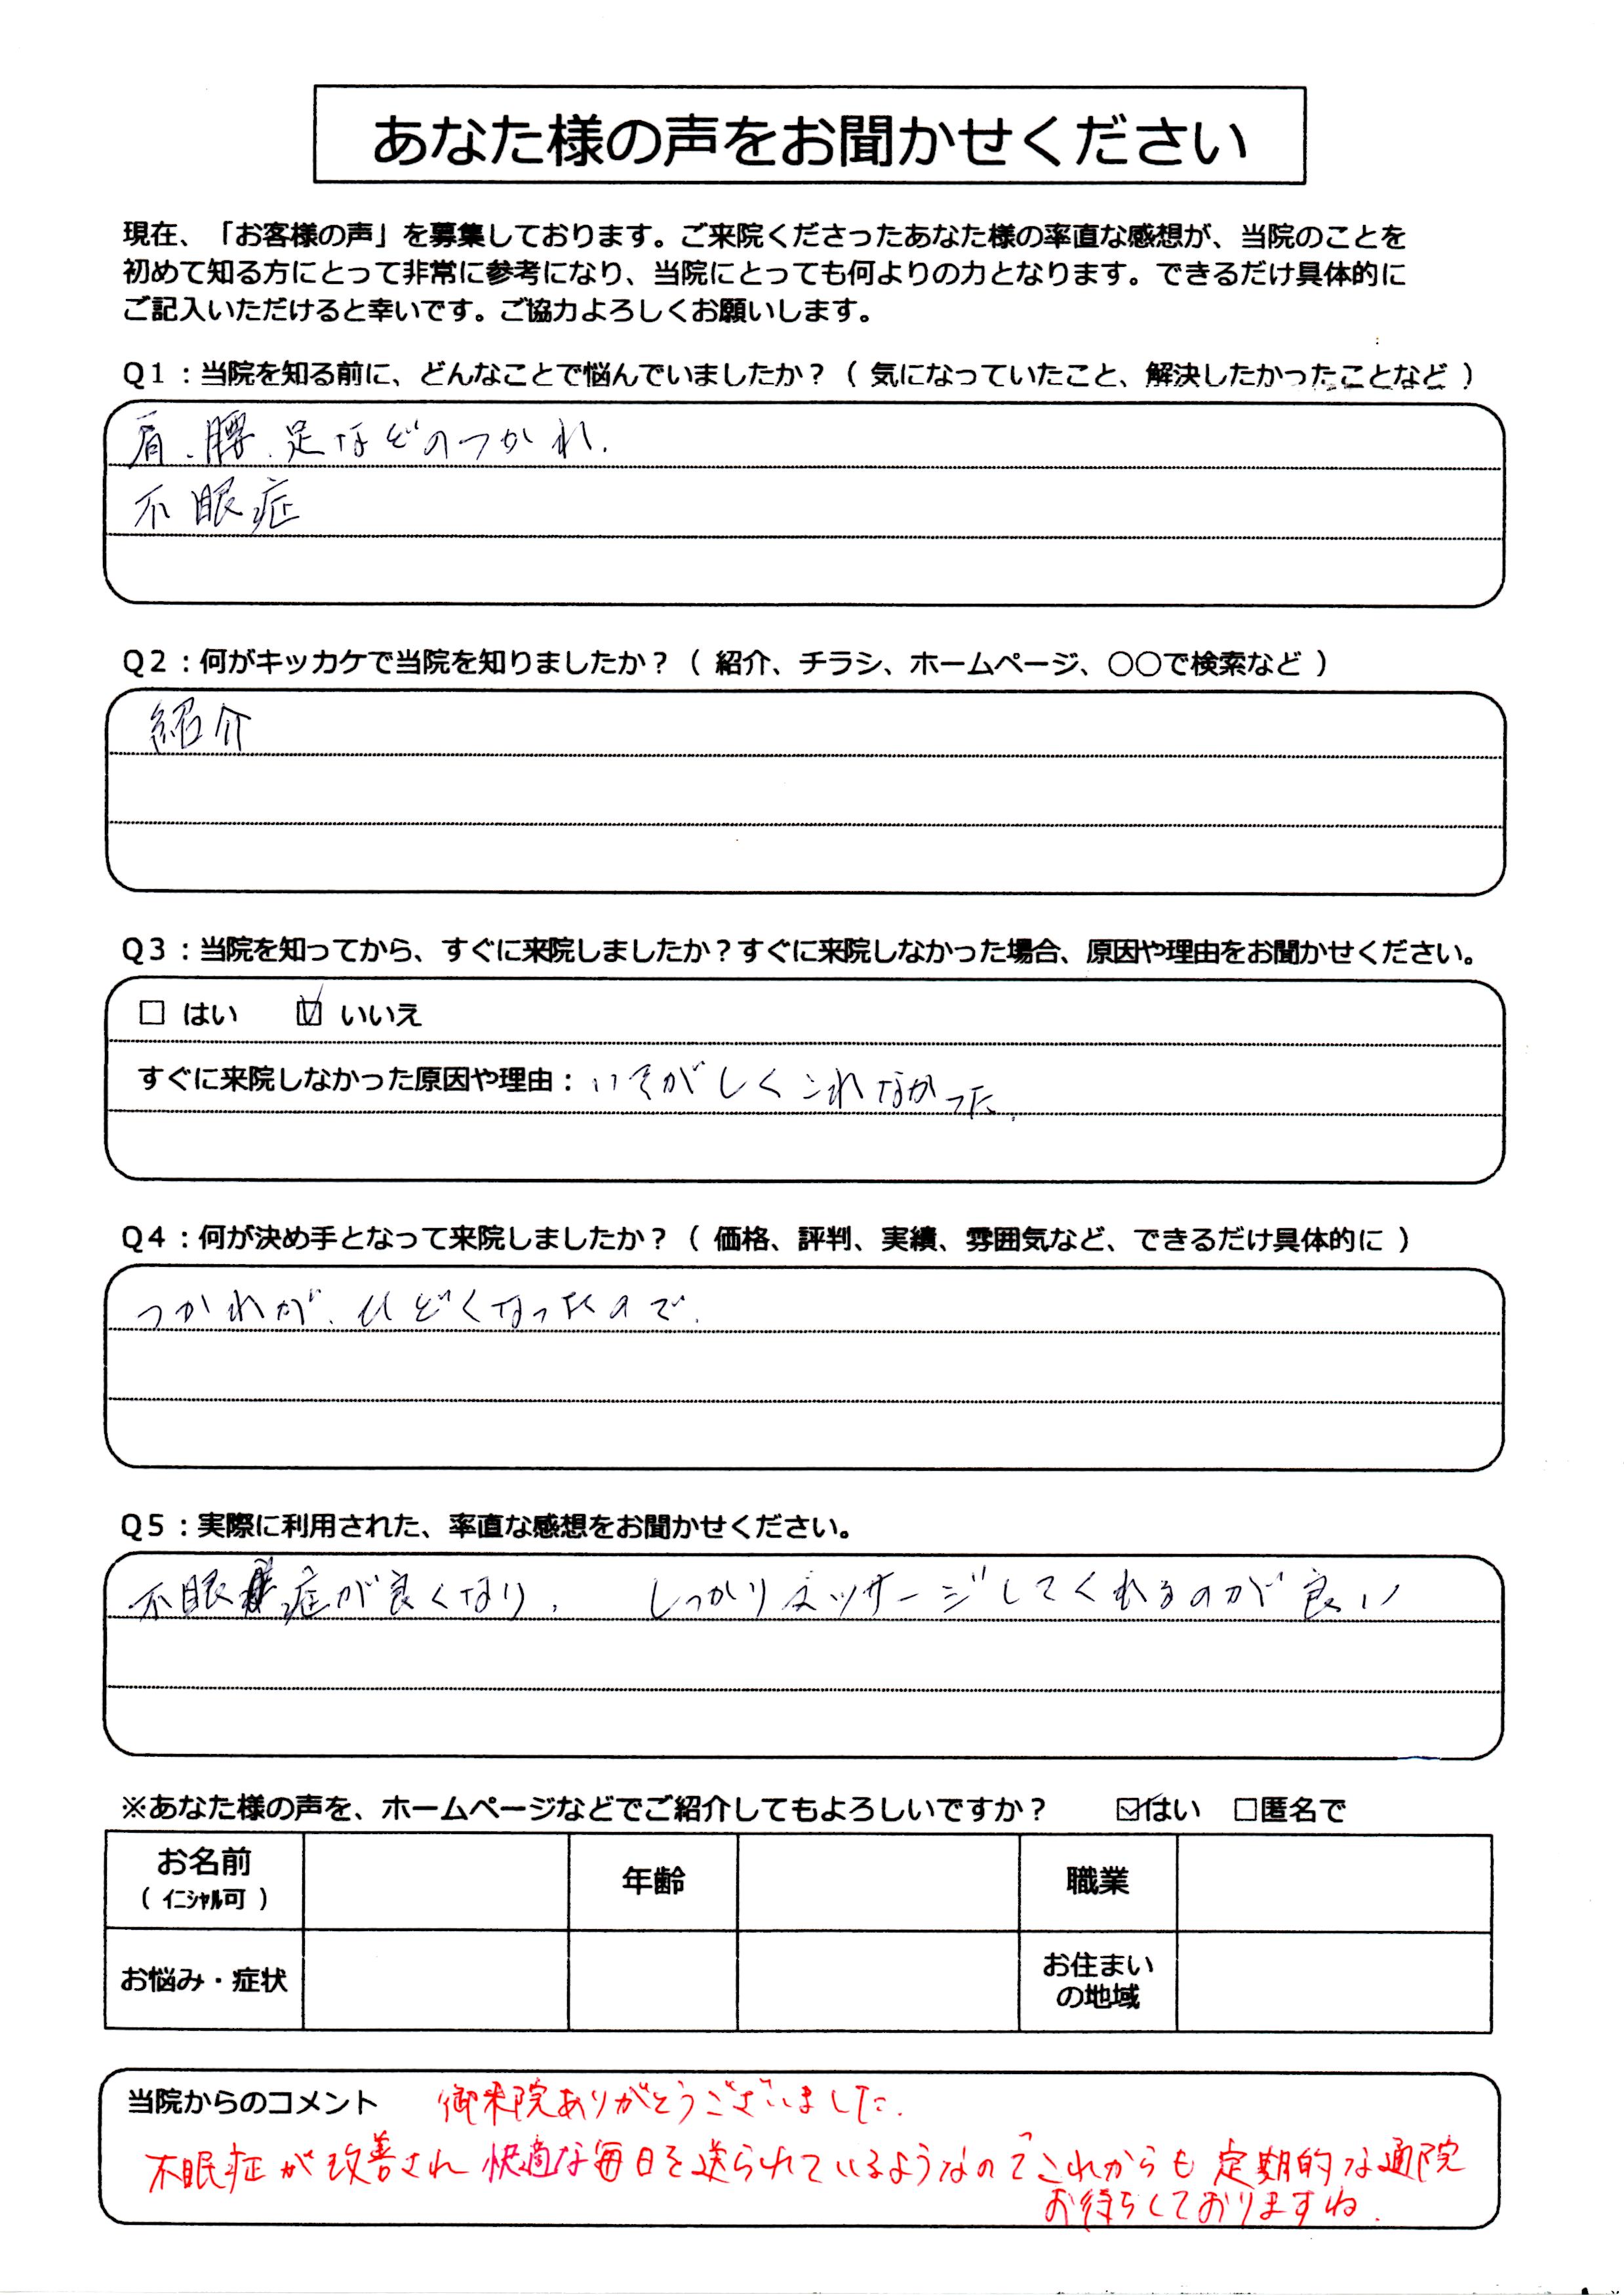 あなた様の声をお聞かせください
現在、「お客様の声」を募集しております。ご来院くださったあなた様の率直な感想が、当院のことを
初めて知る方にとって非常に参考になり、当院にとっても何よりの力となります。できるだけ具体的に
ご記入いただけると幸いです。ご協力よろしくお願いします。
Q1：当院を知る前に、どんなことで悩んでいましたか？（ 気になっていたこと、解決したかったことなど ）
肩、腰、足などのつかれ.
不眠症
Q2：何がキッカケで当院を知りましたか？（ 紹介、チラシ、ホームページ、○○で検索など ）
紹介
Q3：当院を知ってから、すぐに来院しましたか？すぐに来院しなかった場合、原因や理由をお聞かせください。
□ はい ☑ いいえ
すぐに来院しなかった原因や理由：いそがしくこれなかった.
Q4：何が決め手となって来院しましたか？（ 価格、評判、実績、雰囲気など、できるだけ具体的に ）
つかれが、ひどくなったので.
Q5：実際に利用された、率直な感想をお聞かせください。
不眠症が良くなり、 しっかりマッサージしてくれるのが良い
※あなた様の声を、ホームページなどでご紹介してもよろしいですか？ ☑はい □匿名で
お名前 年齢 職業
（ イニシャル可 ）
お悩み・症状 お住まい
の地域
当院からのコメント 御来院ありがとうございました.
不眠症が改善され快適な毎日を送られているようなのでこれからも定期的な通院
お待ちしておりますね.